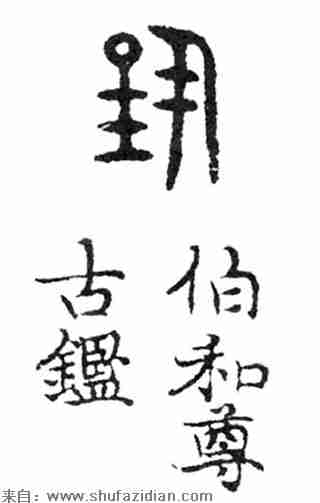 伯和尊
古鑑
来自：www.shufazidian.com